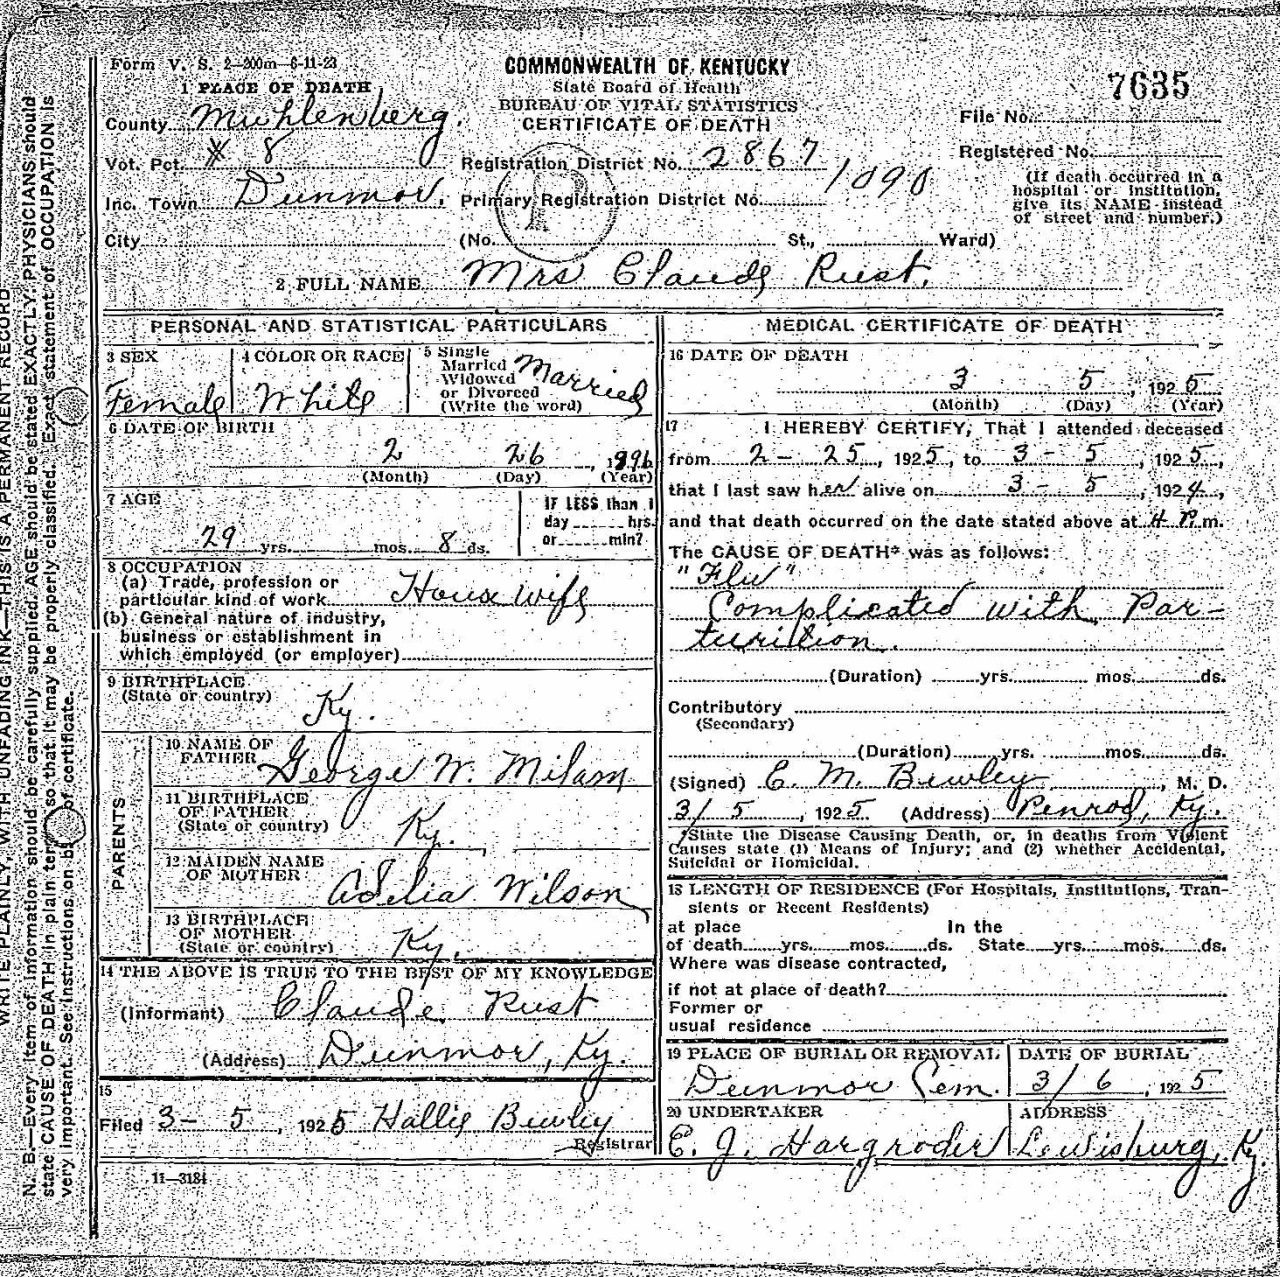 Form V. S. 2—200m—6-11-23
COMMONWEALTH OF KENTUCKY
State Board of Health
BUREAU OF VITAL STATISTICS
CERTIFICATE OF DEATH
7635
1 PLACE OF DEATH
County Muhlenberg.
Vot. Pct. 8
Inc. Town Dunmor.
City
Registration District No. 2867
Primary Registration District No. 1090
(No. St., Ward)
File No.
Registered No.
(If death occurred in a
hospital or institution,
give its NAME instead
of street and number.)
2 FULL NAME Mrs Claude Rust.
PERSONAL AND STATISTICAL PARTICULARS
3 SEX
Female
4 COLOR OR RACE
White
5 Single
Married
Widowed
or Divorced
(Write the word)
Married
6 DATE OF BIRTH
2 26, 1896
(Month) (Day) (Year)
7 AGE
29 yrs. mos. 8 ds.
IF LESS than 1
day hrs.
or min?
8 OCCUPATION
(a) Trade, profession or
particular kind of work House wife
(b) General nature of industry,
business or establishment in
which employed (or employer)
9 BIRTHPLACE
(State or country)
Ky.
PARENTS
10 NAME OF
FATHER George W. Milam
11 BIRTHPLACE
OF FATHER
(State or country) Ky.
12 MAIDEN NAME
OF MOTHER Adelia Wilson
13 BIRTHPLACE
OF MOTHER
(State or country) Ky.
14 THE ABOVE IS TRUE TO THE BEST OF MY KNOWLEDGE
(Informant) Claude Rust
(Address) Dunmor, Ky.
15
Filed 3- 5, 1925 Hallie Bewley
Registrar
11—3184
MEDICAL CERTIFICATE OF DEATH
16 DATE OF DEATH
3 5, 1925
(Month) (Day) (Year)
17 I HEREBY CERTIFY, That I attended deceased
from 2 - 25, 1925, to 3 - 5, 1925,
that I last saw her alive on 3 - 5, 1924,
and that death occurred on the date stated above at 4 P. m.
The CAUSE OF DEATH* was as follows:
"Flu"
Complicated with Par-
turition.
(Duration) yrs. mos. ds.
Contributory
(Secondary)
(Duration) yrs. mos. ds.
(Signed) E. M. Bewley, M. D.
3/5, 1925. (Address) Penrod, Ky.
*State the Disease Causing Death, or, in deaths from Violent
Causes state (1) Means of Injury; and (2) whether Accidental,
Suicidal or Homicidal.
18 LENGTH OF RESIDENCE (For Hospitals, Institutions, Tran-
sients or Recent Residents)
at place In the
of death yrs. mos. ds. State yrs. mos. ds.
Where was disease contracted,
if not at place of death?
Former or
usual residence
19 PLACE OF BURIAL OR REMOVAL
Dunmor Cem.
DATE OF BURIAL
3/6, 1925
20 UNDERTAKER
E. J. Hargroder
ADDRESS
Lewisburg, Ky.
WRITE PLAINLY, WITH UNFADING INK—THIS IS A PERMANENT RECORD
N. B.—Every item of information should be carefully supplied. AGE should be stated EXACTLY. PHYSICIANS should
state CAUSE OF DEATH in plain terms so that it may be properly classified. Exact statement of OCCUPATION is
very important. See instructions on back of certificate.